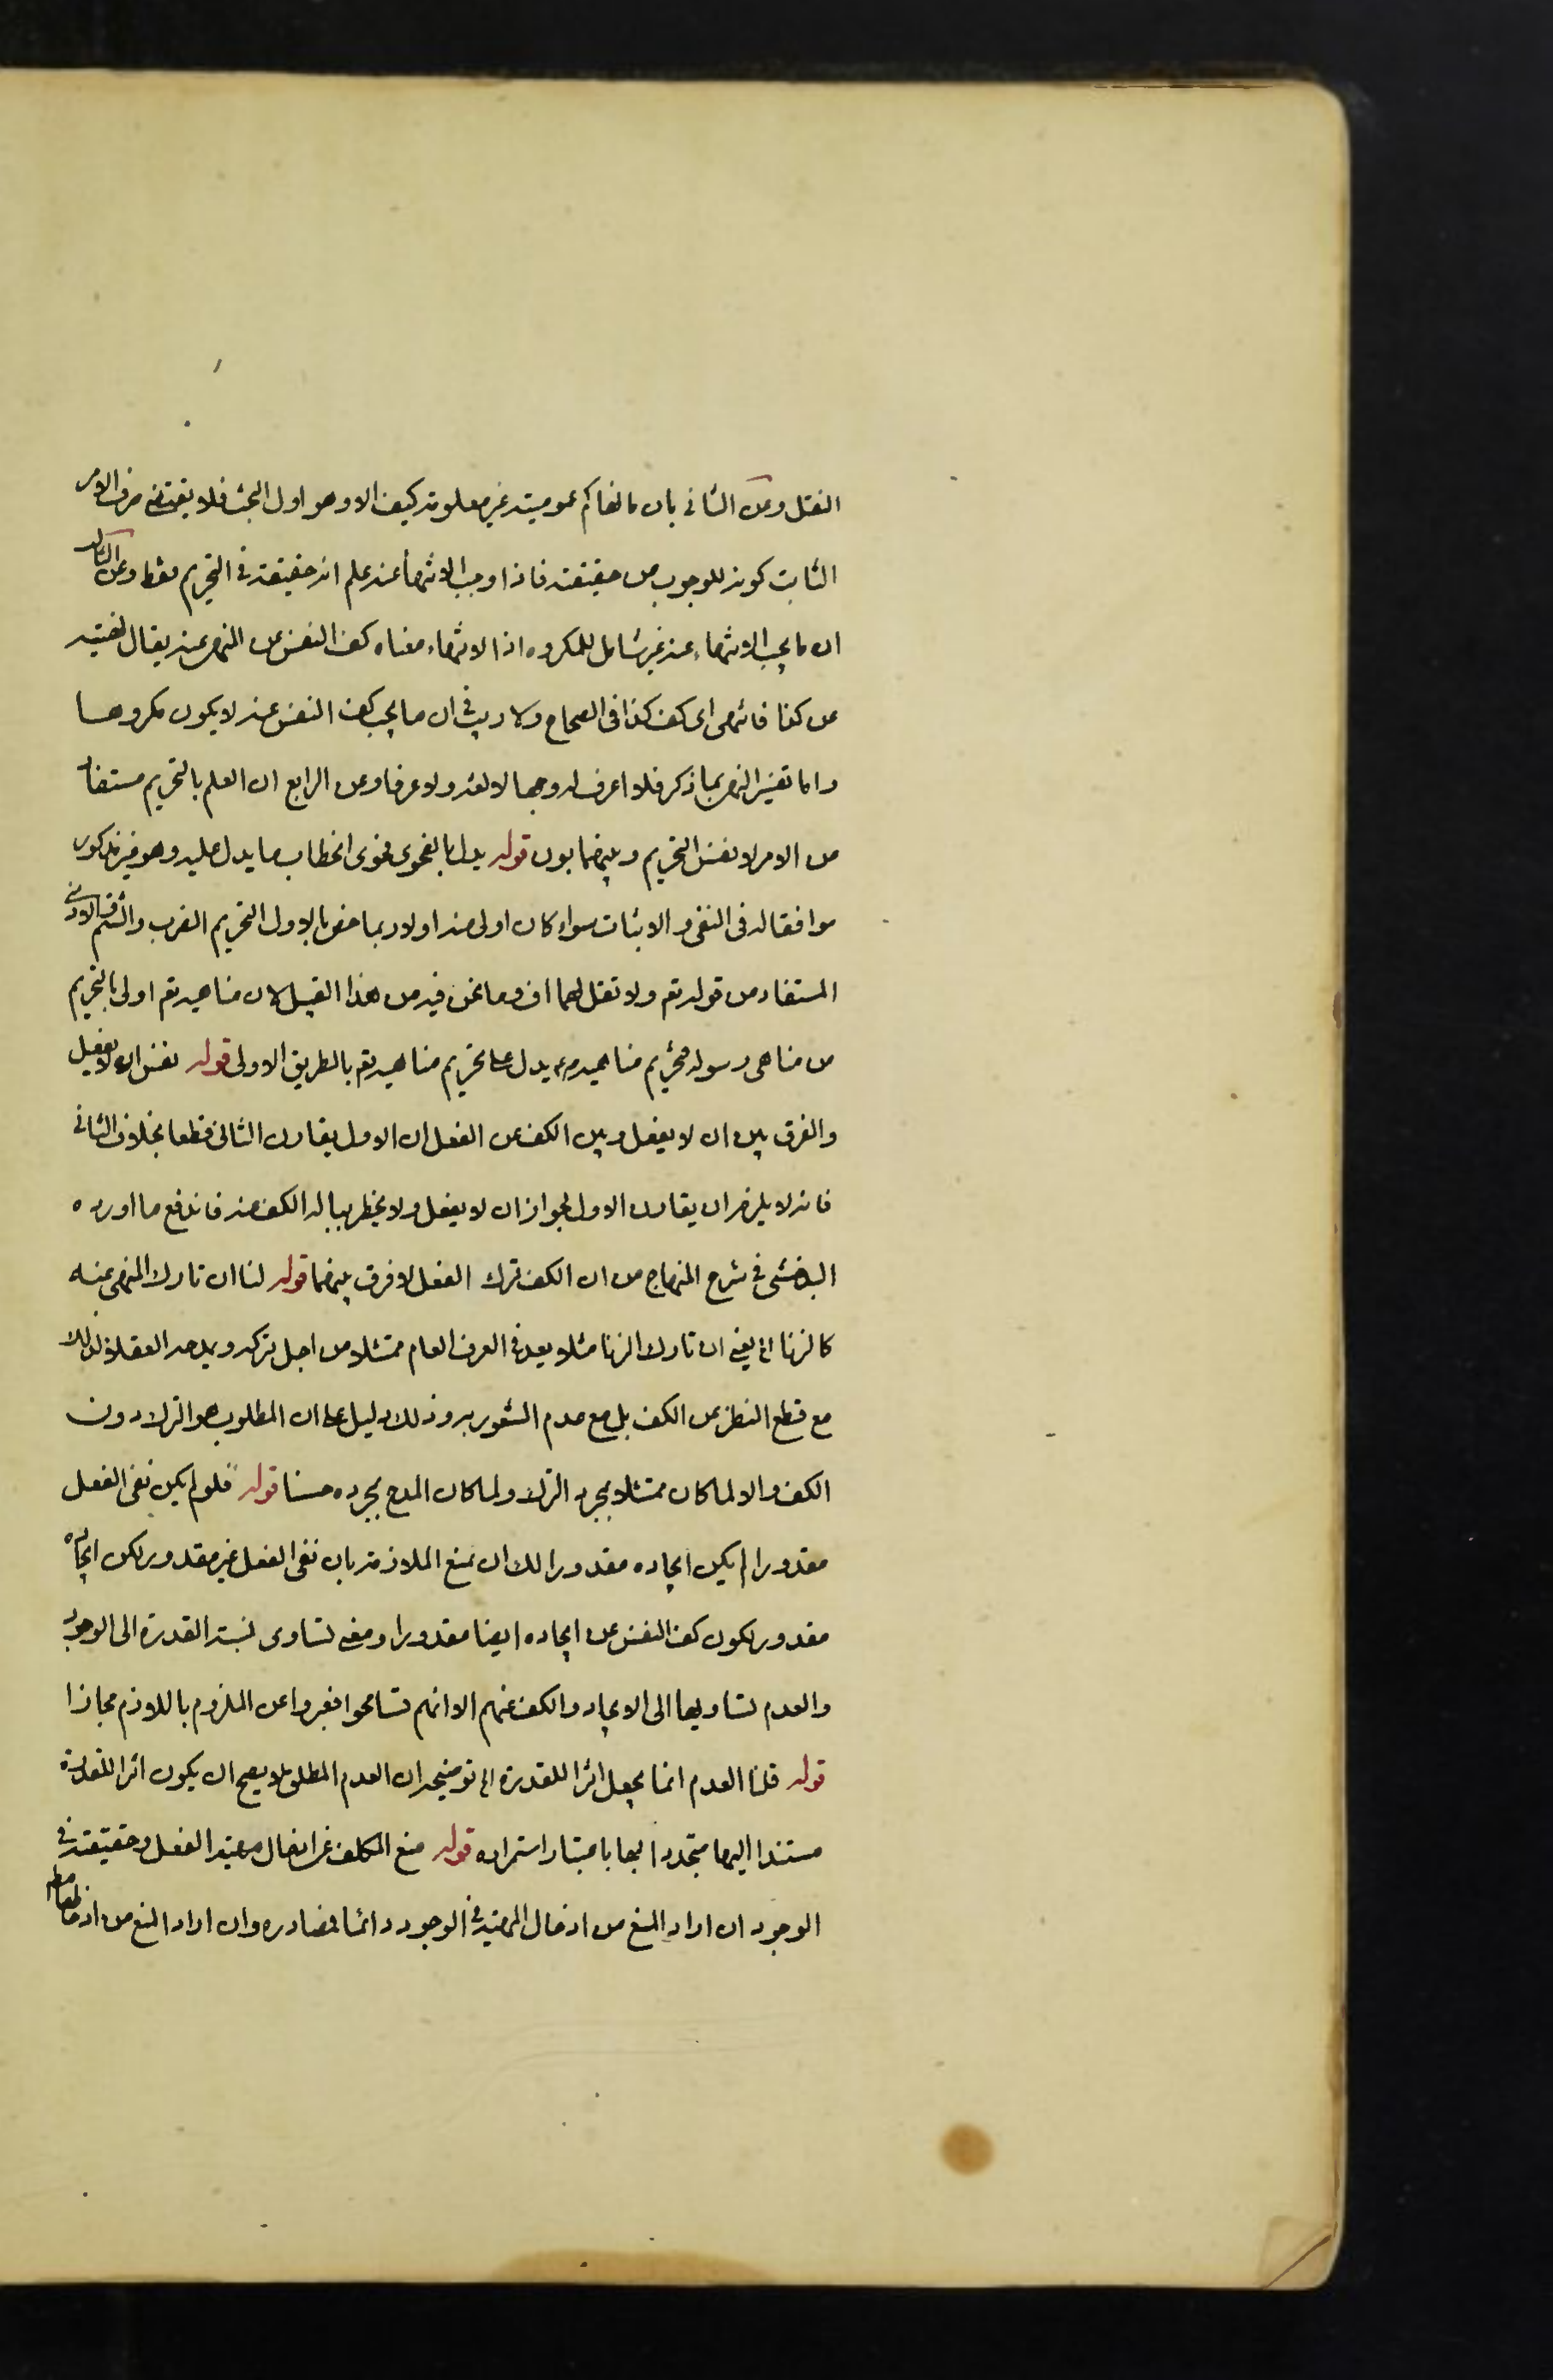 النقل وعن الثاني بان ما نهاكم عموميته غير معلومة كيف الا وهو اول البحث فلا يقتضي صرف الامر
الثابت كونه للوجوب من حقيقته فاذا وجب الانتهاء عنه علم انه حقيقة في التحريم فقط وعن الثالث
ان ما يجب الانتهاء عنه غير شامل للمكروه اذ الانتهاء معناه كف النفس عن المنهي عنه يقال نهيته
عن كذا فانتهى اى كف كذا في الصحاح ولا ريب في ان ما يجب كف النفس عنه لا يكون مكروها
واما تفسير النهي بما ذكر فلا اعرف له وجها لا لغة ولا عرفا وعن الرابع ان العلم بالتحريم مستفاد
من الامر لا نفس التحريم وبينهما بون قوله يدل بالفحوى فحوى الخطاب ما يدل عليه وهو غير مذكور
موافقا له في النفي والاثبات سواء كان اولى منه اولا وربما خص بالاول التحريم الضرب والشتم الاذى
المستفاد من قوله تع ولا تقل لهما اف وما نحن فيه من هذا القبيل لان مناهيه تع اولى بالتحريم
من مناهى رسوله فتحريم مناهيه ص يدل على تحريم مناهيه تع بالطريق الاولى قوله نفس ان لا يفعل
والفرق بين ان لا يفعل وبين الكف عن الفعل ان الاول يقارن الثاني قطعا بخلاف الثاني
فانه لا يلزم ان يقارن الاول لجواز ان لا يفعل ولا يخطر بباله الكف عنه فاندفع ما اورده
البدخشى في شرح المنهاج من ان الكف ترك الفعل لا فرق بينهما قوله لنا ان تارك المنهى عنه
كالزنا الخ يعني ان تارك الزنا مثلا يعد في العرف العام ممتثلا من اجل تركه ويمدحه العقلاء لذلك
مع قطع النظر عن الكف بل مع عدم الشعور به وذلك دليل على ان المطلوب هو الترك دون
الكف والا لما كان ممتثلا بمجرد الترك ولما كان المدح بمجرده حسنا قوله فلو لم يكن نفى الفعل
مقدورا لم يكن ايجاده مقدورا لك ان تمنع الملازمة بان نفى الفعل غير مقدور لكن ايجاده
مقدور لكون كف النفس عن ايجاده ايضا مقدورا ومعنى تساوى نسبة القدرة الى الوجود
والعدم تساويها الى الايجاد والكف عنهم الا انهم تسامحوا فعبروا عن الملزوم باللازم مجازا
قوله قلنا العدم انما يجعل اثرا للقدرة الخ توضيحه ان العدم المطلق لا يصح ان يكون اثرا للقدرة
مستندا اليها متجددا بها باعتبار استمراره قوله منع المكلف عن ادخال مهية الفعل وحقيقته في
الوجود ان اراد المنع من ادخال المهية في الوجود دائما فمصادرة وان اراد المنع من ادخالها